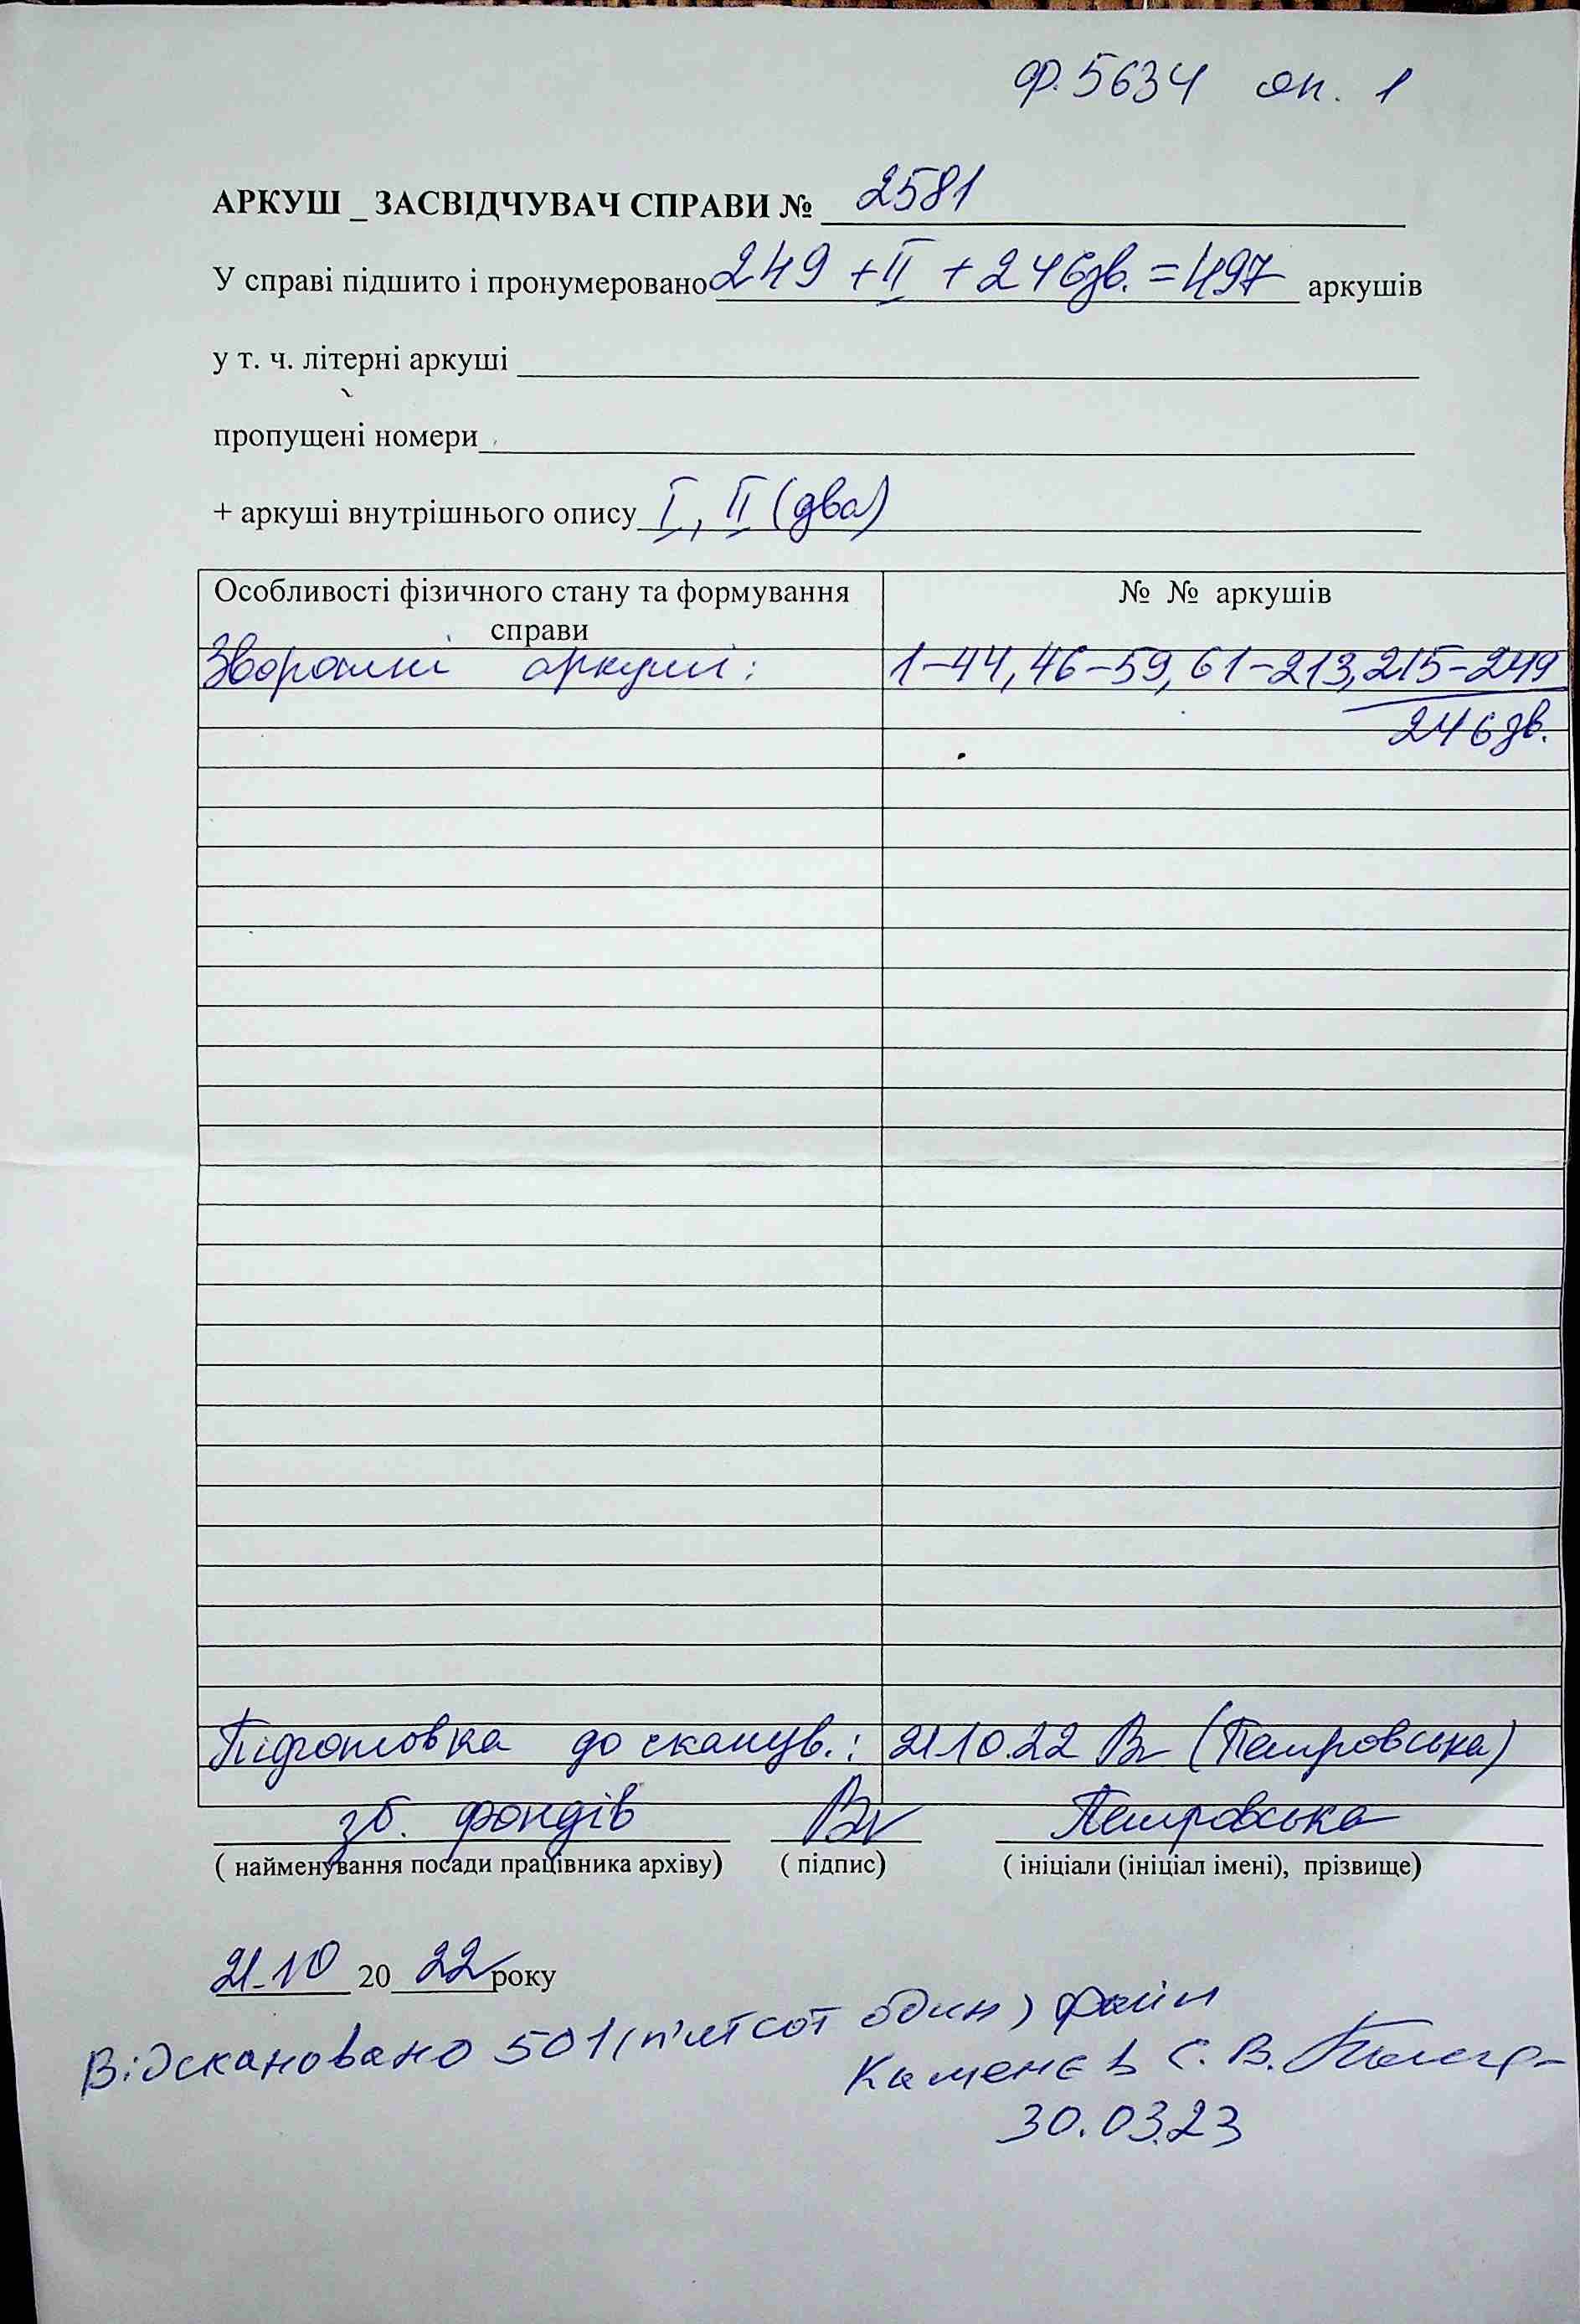 ф. 5634 оп. 1
АРКУШ _ ЗАСВІДЧУВАЧ СПРАВИ № 2581
У справі підшито і пронумеровано 249 + II + 246зв. = 497 аркушів
у т. ч. літерні аркуші
пропущені номери
+ аркуші внутрішнього опису I, II (два)
Особливості фізичного стану та формування справи
№ № аркушів
Зворотні аркуші: 1-44, 46-59, 61-213, 215-249
246зв.
Підготовка до сканув.: 21.10.22 (Петровська)
зб. фондів Петровська
( найменування посади працівника архіву) ( підпис) ( ініціали (ініціал імені), прізвище)
21.10 20 22 року
Відскановано 501 (п'ятсот один) файл
Каменєв С. В.
30.03.23